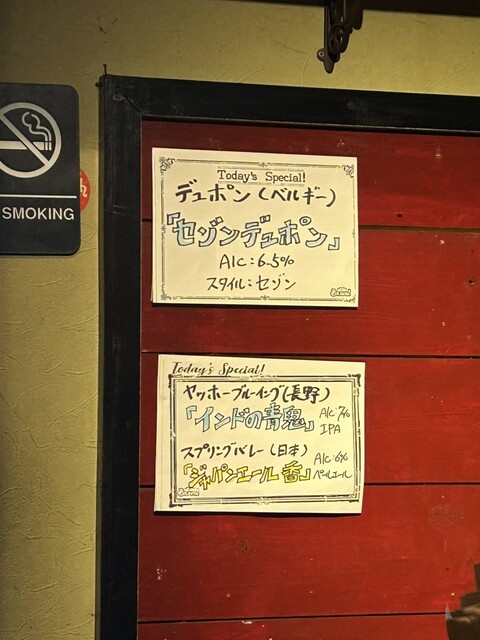 SMOKING
Today's Special!
デュポン(ベルギー)
「セゾンデュポン」
Alc:6.5%
スタイル:セゾン
Today's Special!
ヤッホーブルーイング(長野)
「インドの青鬼」 Alc:7%
IPA
スプリングバレー(日本)
Alc:6%
「ジャパンエール香」 ペールエール